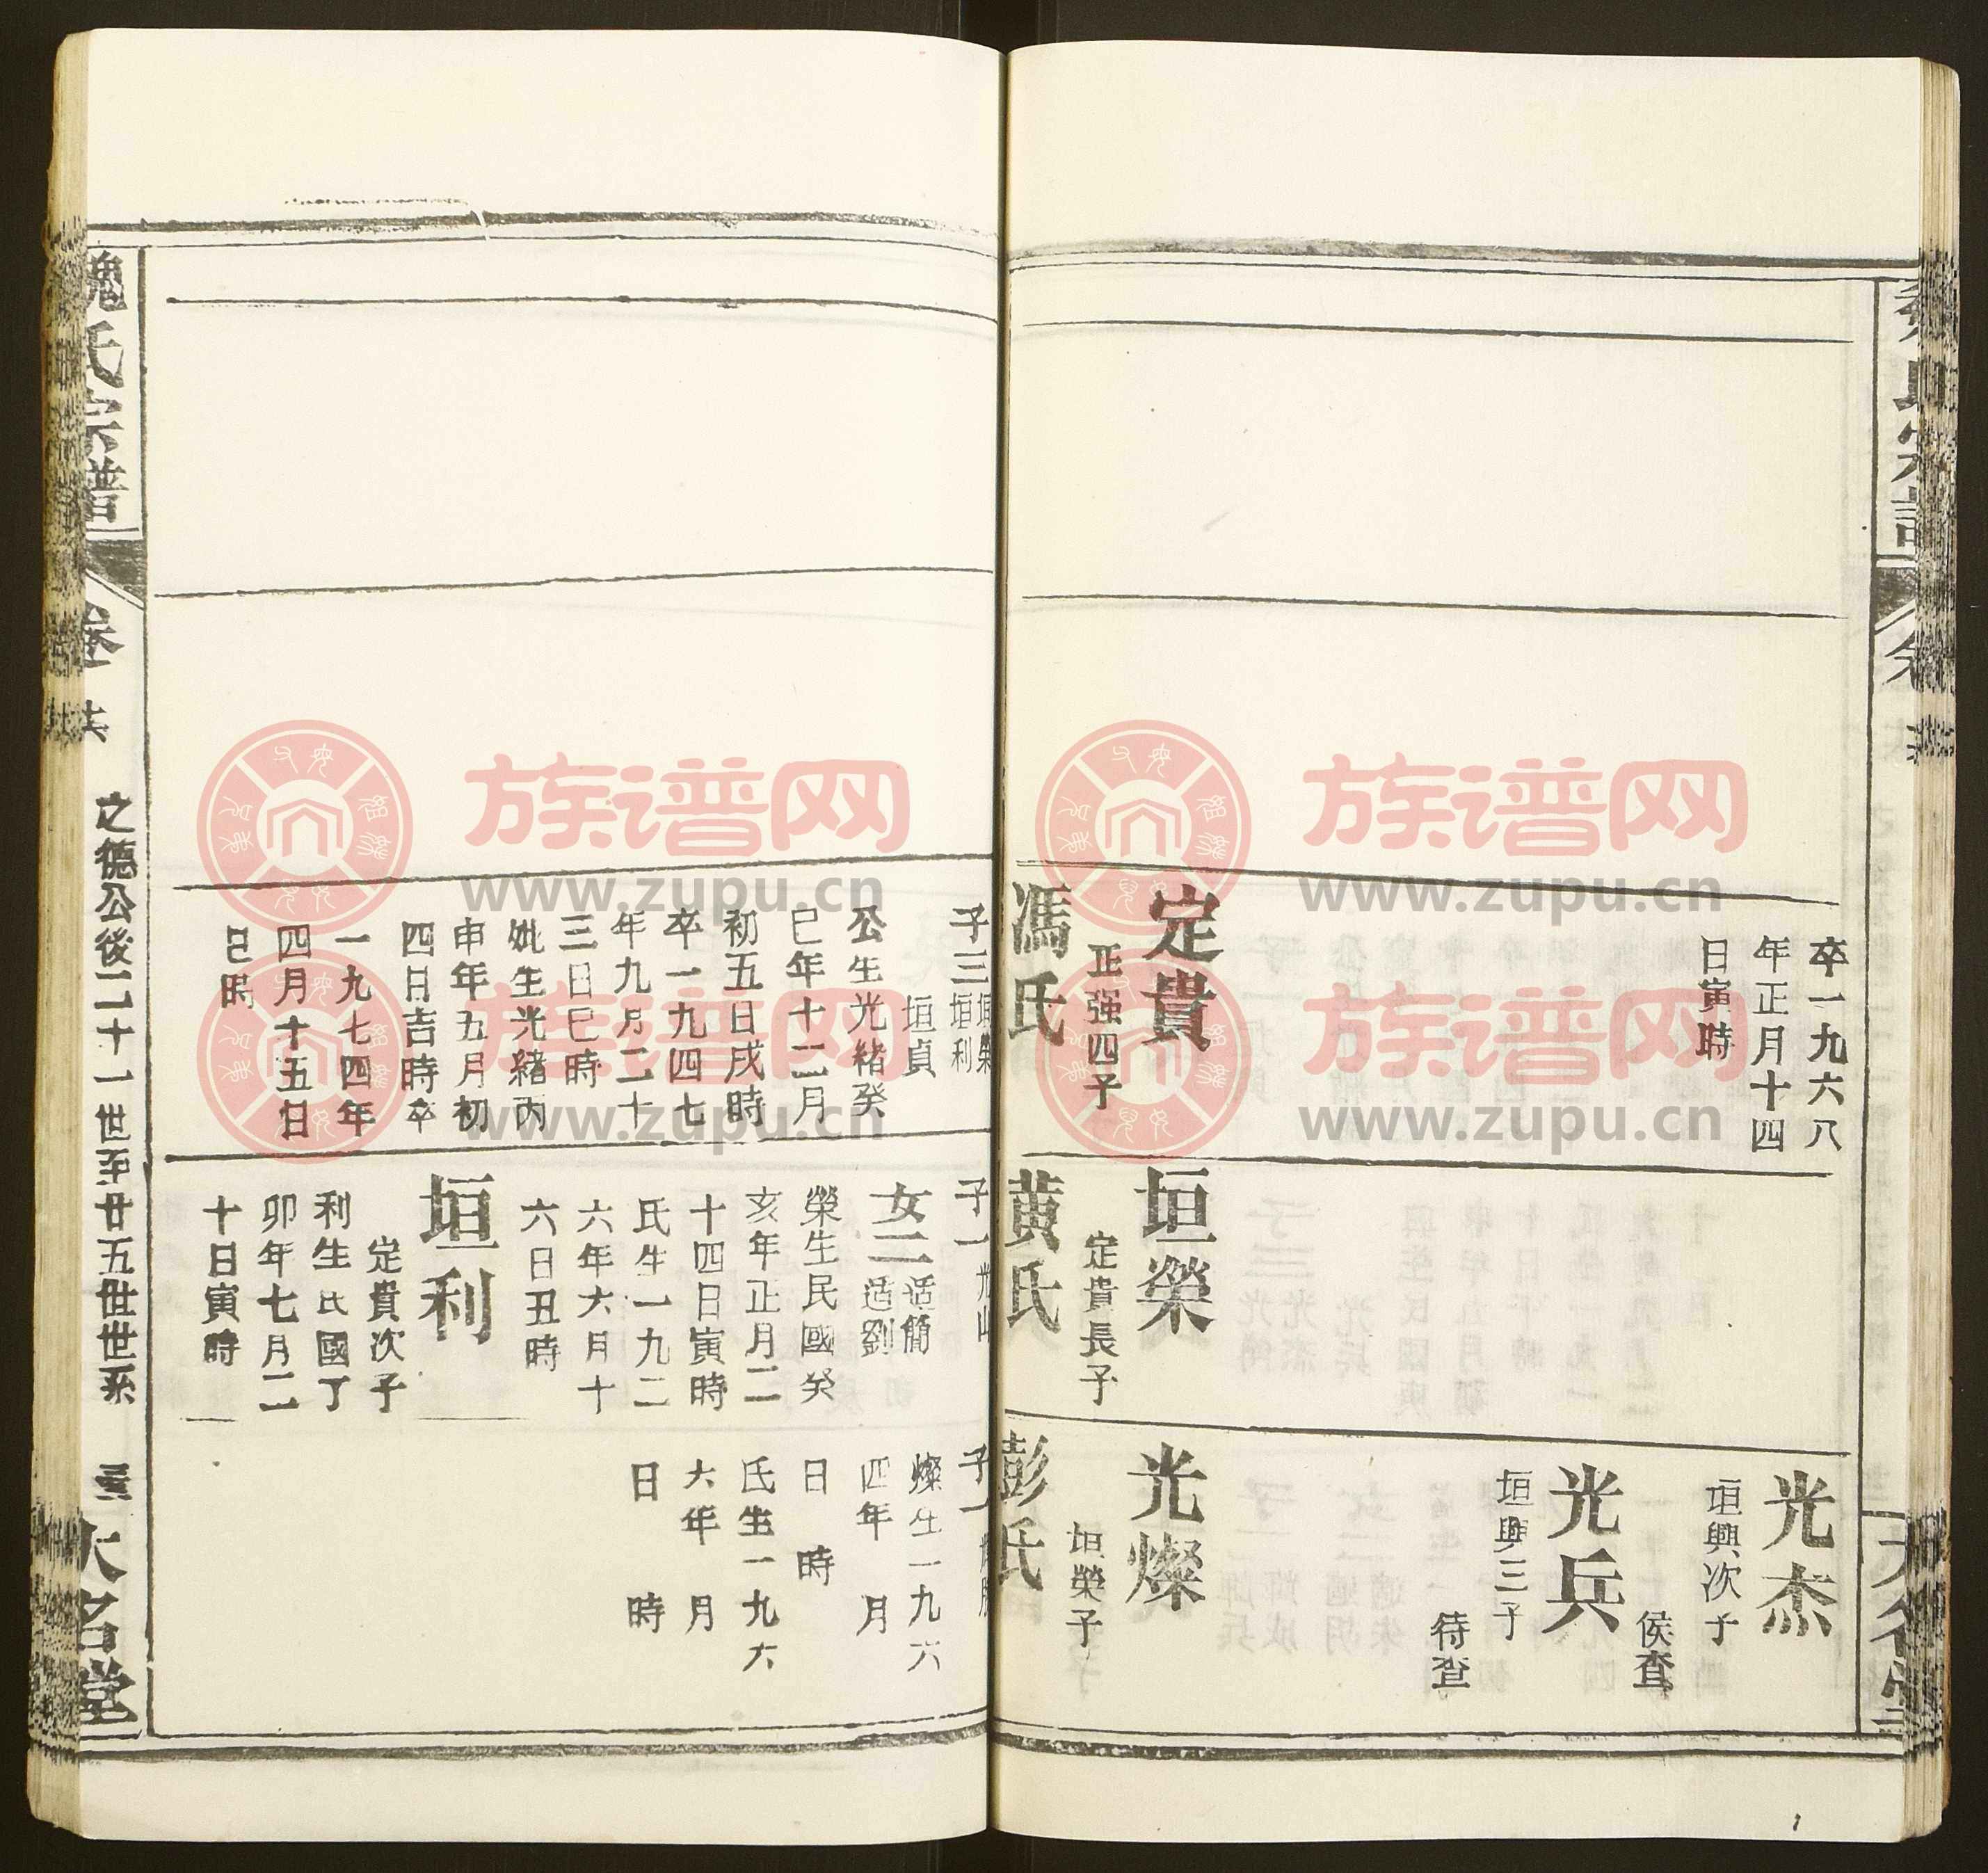 卒一九六八
年正月十四
日寅時
定貴
正强四子
馮氏
垣榮
定貴長子
黃氏
光杰
垣興次子
侯查
光兵
垣興三子
待查
光燦
垣榮子
彭氏
子三
垣榮
垣利
垣貞
公生光緒癸
巳年十二月
初五日戌時
卒一九四七
年九月二十
三日巳時
妣生光緒丙
申年五月初
四日吉時卒
一九七四年
四月十五日
巳時
子一
女二
适簡
适劉
榮生民國癸
亥年正月二
十四日寅時
氏生一九二
六年六月十
六日丑時
垣利
定貴次子
利生民國丁
卯年七月二
十日寅時
子一
燦生一九六
四年 月
日 時
氏生一九六
六年 月
日 時
魏氏宗譜
卷
之德公後二十一世至廿五世世系
大名堂
族谱网
www.zupu.cn
族谱网
www.zupu.cn
族谱网
www.zupu.cn
族谱网
www.zupu.cn